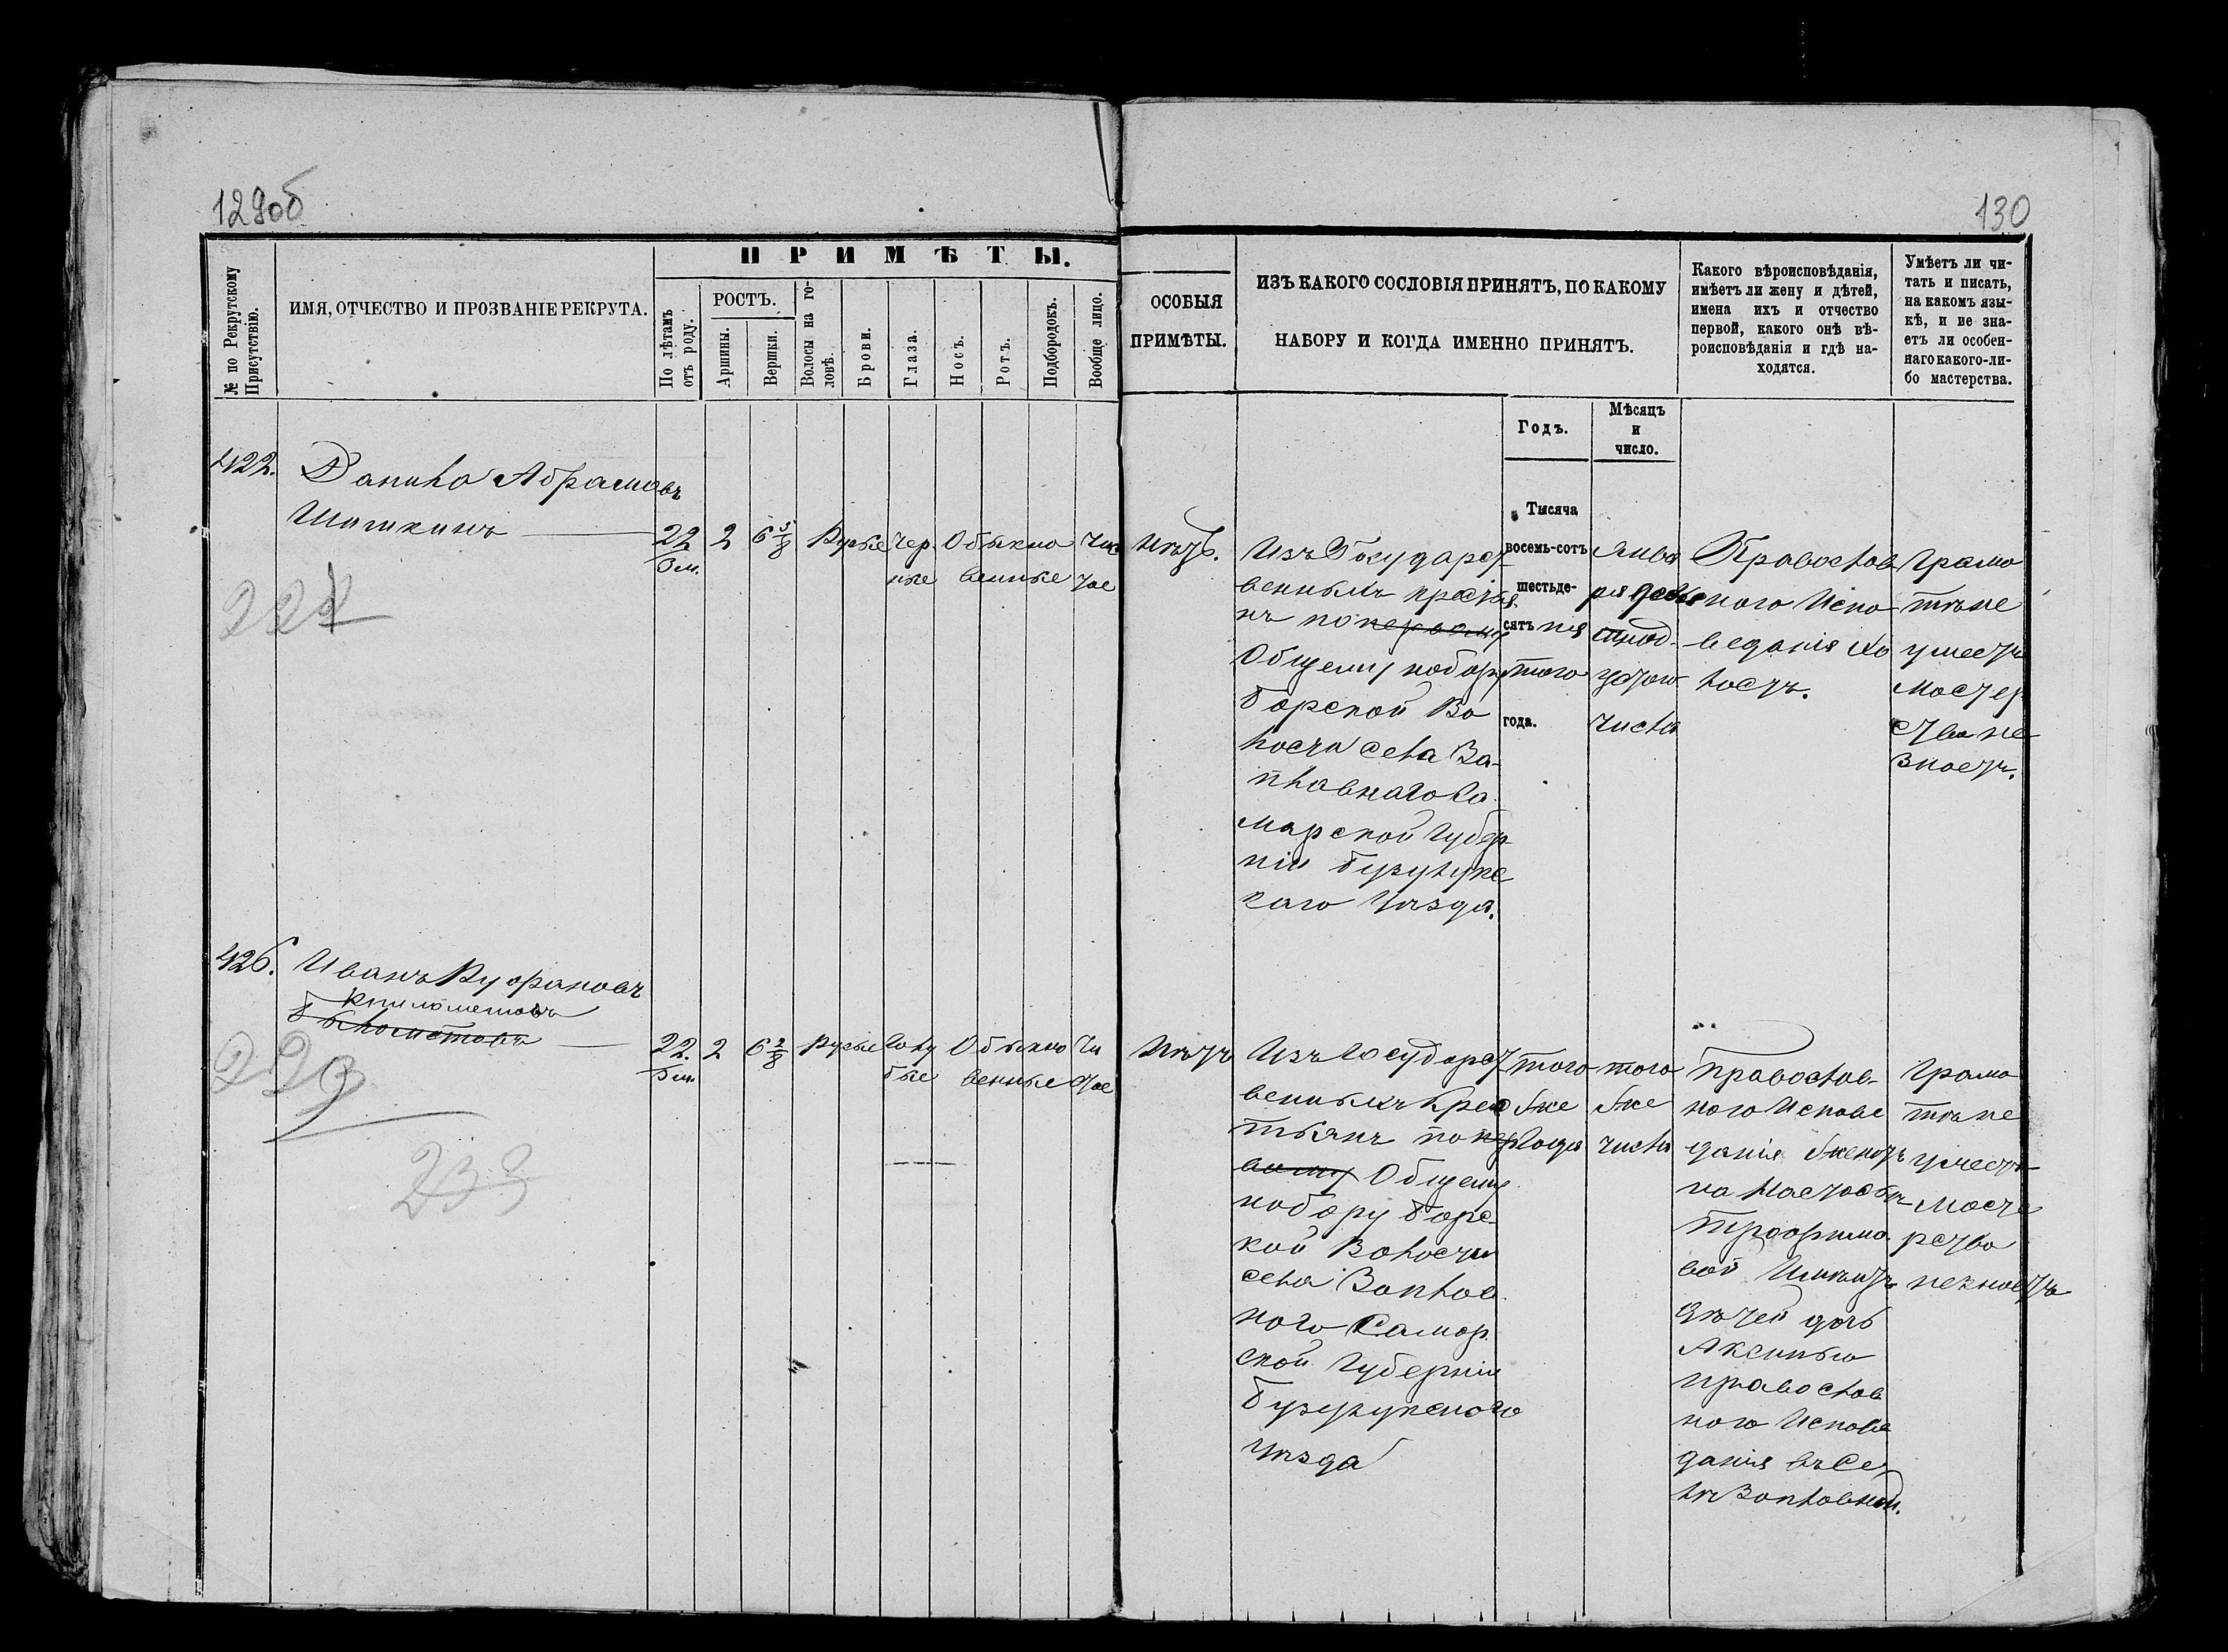 129об
130
ПРИМѢТЫ.
№ по Рекрутскому
Присутствію.
ИМЯ, ОТЧЕСТВО И ПРОЗВАНІЕ РЕКРУТА.
По лѣтамъ
отъ роду.
РОСТЪ.
Аршины.
Вершки.
Волосы на го-
ловѣ.
Брови.
Глаза.
Носъ.
Ротъ.
Подбородокъ.
Вообще лицо.
ОСОБЫЯ
ПРИМѢТЫ.
ИЗЪ КАКОГО СОСЛОВІЯ ПРИНЯТЪ, ПО КАКОМУ
НАБОРУ И КОГДА ИМЕННО ПРИНЯТЪ.
Годъ.
Мѣсяцъ
и
число.
Какого вѣроисповѣданія,
имѣетъ ли жену и дѣтей,
имена ихъ и отчество
первой, какого онѣ вѣ-
роисповѣданія и гдѣ на-
ходятся.
Умѣетъ ли чи-
тать и писать,
на какомъ язы-
кѣ, и не зна-
етъ ли особен-
наго какого-ли-
бо мастерства.
422.
Данило Абрамовъ
Шишкинъ
22
3 м.
2
6 5/8
Русые
Чер
ные
Обыкно
венные
Чис
тое
Нѣтъ.
Изъ Государст
венныхъ крестья
нъ по первому
Общему набору
Борской Во
лости села За-
плавнаго Са
марской Губер
ніи Бузулукс
каго Уѣзда.
Тысяча
восемь-сотъ
шестьде-
сятъ пя
того
года.
Янва
ря девя
тнад-
цатого
числа
Православ
ного Испо
веданія хо
лостъ.
Грамо
тѣ не
умеетъ
мастер
ства не
знаетъ.
426.
Иванъ Руфановъ
Былометовъ
22.
3 м.
2
6 2/8
Русые
Голу
бые
Обыкно
венные
Чи
стое
Нѣтъ
Изъ Государст
венныхъ Крес
тьянъ по пер
вому Общему
набору Борс
кой Волости
села Заплав
ного Самар
ской Губерніи
Бузулукского
Уѣзда
того
же
года
того
же
числа
Православ-
ного Испове
данія женатъ
на Настасьѣ
Трофимо
вой Имѣетъ
дѣтей дочь
Аксинью
православ
ного Испове
данія въ Се
лѣ Заплавном.
Грамо
тѣ не
умеетъ
масте
рства
не знаетъ
229
233